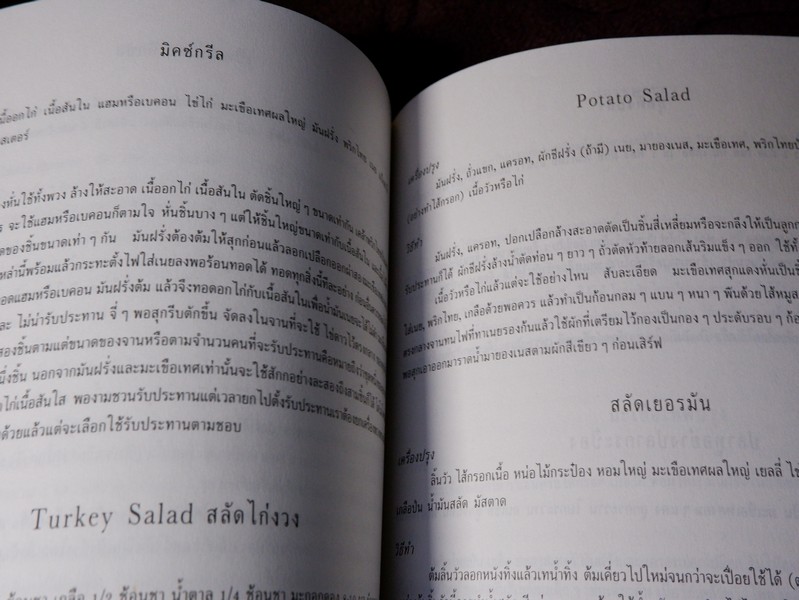 มิคซ์กรีล
เนื้ออกไก่ เนื้อสันใน แฮมหรือเบคอน ไข่ไก่ มะเขือเทศผลใหญ่ มันฝรั่ง พริกไทย เนย
สเตอร์
หั่นใช้ทั้งพวง ล้างให้สะอาด เนื้ออกไก่ เนื้อสันใน ตัดชิ้นใหญ่ ๆ ขนาดเท่ากัน
จะใช้แฮมหรือเบคอนก็ตามใจ หั่นชิ้นบาง ๆ แต่ให้ชิ้นใหญ่ขนาดเท่ากับเนื้อสันใน
ของชิ้นขนาดเท่า ๆ กัน มันฝรั่งต้องต้มให้สุกก่อนแล้วลอกเปลือกออกผ่า
เหล่านี้พร้อมแล้วกระทะตั้งไฟใส่เนยลงพอร้อนทอดได้ ทอดทุกสิ่งนี้ทีละอย่าง
ทอดแฮมหรือเบคอน มันฝรั่งต้ม แล้วจึงทอดอกไก่กับเนื้อสันใน
ไม่น่ารับประทาน จี่ ๆ พอสุกรีบตักขึ้น จัดลงในจานที่จะใช้ ไข่ดาวไว้ตรงกลาง
สองชิ้นตามแต่ขนาดของจานหรือตามจำนวนคนที่จะรับประทานคือหมายถึงว่า
นึ่งชิ้น นอกจากมันฝรั่งและมะเขือเทศเท่านั้นจะใช้สักกอย่างละสองถึงสามชิ้นก็ได้
ไก่เนื้อสันใส พองามชวนรับประทานแต่เวลายกไปตั้งรับประทานเราต้อง
ด้วยแล้วแต่จะเลือกใช้รับประทานตามชอบ
Turkey Salad สลัดไก่งวง
ช้อนชา เกลือ 1/2 ช้อนชา น้ำตาล 1/4 ช้อนชา มะกอกดอง
Potato Salad
เครื่องปรุง
มันฝรั่ง, ถั่วแขก, แครอท, ผักชีฝรั่ง (ถ้ามี) เนย, มายองเนส, มะเขือเทศ, พริกไทย
(อย่างทำไส้กรอก) เนื้อวัวหรือไก่
วิธีทำ
มันฝรั่ง, แครอท, ปอกเปลือกล้างสะอาดตัดเป็นชิ้นสี่เหลี่ยมหรือจะกลึงให้เป็นลูก
รับประทานก็ได้ ผักชีฝรั่งล้างน้ำตัดท่อน ๆ ยาว ๆ ถั่วตัดหัวท้ายลอกเส้นริมแข็ง ๆ ออก ใช้ทั้ง
เนื้อวัวหรือไก่แล้วแต่จะใช้อย่างไหน สับละเอียด มะเขือเทศสุกแดงหั่นเป็นชิ้น
ใส่เนย, พริกไทย, เกลือด้วยพอควร แล้วทำเป็นก้อนกลม ๆ แบน ๆ หนา ๆ พันด้วยไส้หมู
ตรงกลางจานทนไฟที่ทาเนยรองก้นแล้วใช้ผักที่เตรียมไว้กองเป็นกอง ๆ ประดับรอบ ๆ
พอสุกเอาออกมาราดน้ำมายองเนสตามผักสีเขียว ๆ ก่อนเสิร์ฟ
สลัดเยอรมัน
เครื่องปรุง
ลิ้นวัว ไส้กรอกเนื้อ หน่อไม้กระป๋อง หอมใหญ่ มะเขือเทศผลใหญ่ เยลลี่
เกลือป่น น้ำมันสลัด มัสตาด
วิธีทำ
ต้มลิ้นวัวลอกหนังทิ้งแล้วเทน้ำทิ้ง ต้มเคี่ยวไปใหม่จนกว่าจะเปื่อยใช้ได้